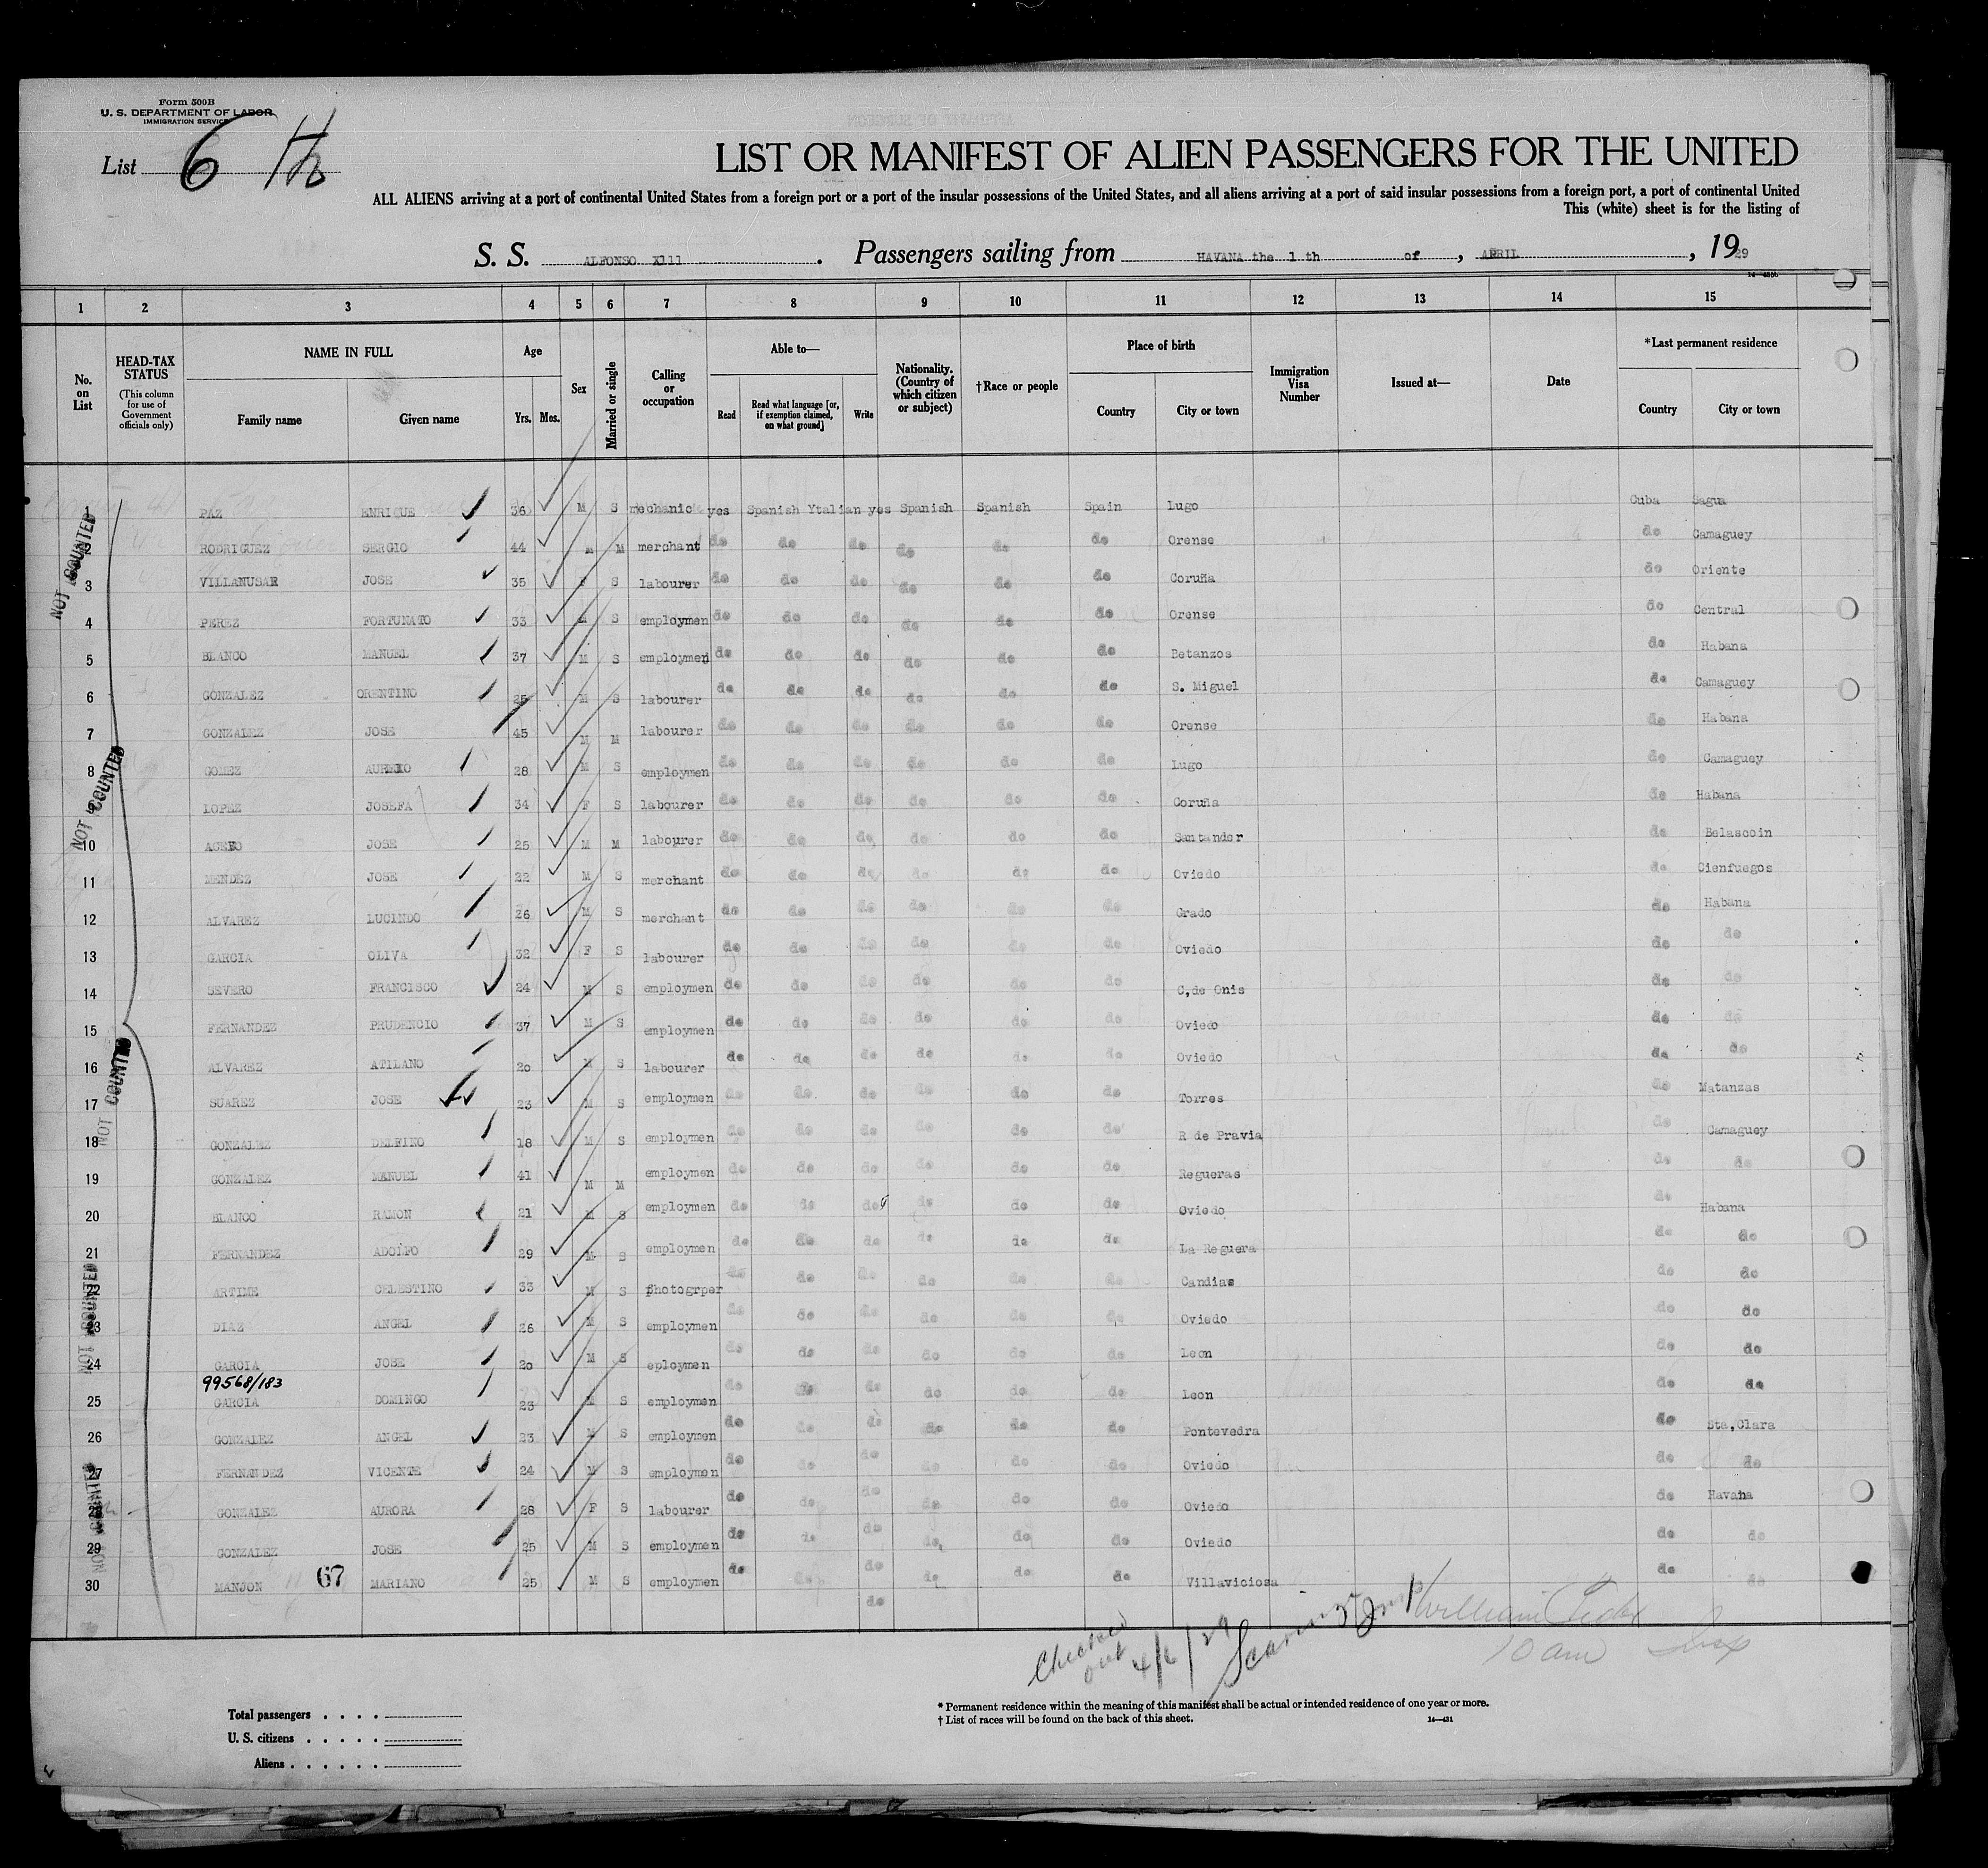 Form 500B
U. S. DEPARTMENT OF LABOR
IMMIGRATION SERVICE
List 6 th
LIST OR MANIFEST OF ALIEN PASSENGERS FOR THE UNITED
ALL ALIENS arriving at a port of continental United States from a foreign port or a port of the insular possessions of the United States, and all aliens arriving at a port of said insular possessions from a foreign port, a port of continental United
This (white) sheet is for the listing of
S. S. ALFONSO X111 . Passengers sailing from HAVANA the 1 th of , APRIL , 1929
14—430b
1 2 3 4 5 6 7 8 9 10 11 12 13 14 15
No. on List
HEAD-TAX STATUS (This column for use of Government officials only)
NAME IN FULL Family name Given name
Age Yrs. Mos.
Sex
Married or single
Calling or occupation
Able to— Read Read what language [or, if exemption claimed, on what ground] Write
Nationality. (Country of which citizen or subject)
†Race or people
Place of birth Country City or town
Immigration Visa Number
Issued at—
Date
*Last permanent residence Country City or town
1 PAZ ENRIQUE 36 M S mechanic yes Spanish Ytalian yes Spanish Spanish Spain Lugo Cuba Sagua
RODRIGUEZ SERGIO 44 M M merchant do do do do do do Orense do Camaguey
3 VILLANUSAR JOSE 35 F S labourer do do do do do do Coruña do Oriente
4 PEREZ FORTUNATO 33 M S employmen do do do do do do Orense do Central
5 BLANCO MANUEL 37 M S employmen do do do do do do Betanzos do Habana
6 GONZALEZ ORENTINO 25 M S labourer do do do do do do S. Miguel do Camaguey
7 GONZALEZ JOSE 45 M M labourer do do do do do do Orense do Habana
8 GOMEZ 28 M S employmen do do do do do do Lugo do Camaguey
9 LOPEZ JOSEFA 34 F S labourer do do do do do do Coruña do Habana
10 JOSE 25 M M labourer do do do do do do Santander do Belascoin
11 MENDEZ JOSE 22 M S merchant do do do do do do Oviedo do Cienfuegos
12 ALVAREZ LUCINDO 26 M S merchant do do do do do do Grado do Habana
13 GARCIA OLIVA 32 F S labourer do do do do do do Oviedo do do
14 SEVERO FRANCISCO 24 M S employmen do do do do do do C,de Onis do do
15 FERNANDEZ PRUDENCIO 37 M S employmen do do do do do do Oviedo do do
16 ALVAREZ ATILANO 20 M S labourer do do do do do do Oviedo do do
17 SUAREZ JOSE 23 M S employmen do do do do do do Torres do Matanzas
18 GONZALEZ DELFINO 18 M S employmen do do do do do do R de Pravia do Camaguey
19 GONZALEZ MANUEL 41 M M employmen do do do do do do Regueras do do
20 BLANCO RAMON 21 M S employmen do do do do do do Oviedo do Habana
21 FERNANDEZ ADOLFO 29 M S employmen do do do do do do La Reguera do do
22 ARTIME CELESTINO 33 M S photogrper do do do do do do Candias do do
23 DIAZ ANGEL 26 M S employmen do do do do do do Oviedo do do
24 GARCIA JOSE 20 M S eploymen do do do do do do Leon do do
99568/183
25 GARCIA DOMINGO 23 M S employmen do do do do do do Leon do do
26 GONZALEZ ANGEL 23 M S employmen do do do do do do Pontevedra do Sta,Clara
27 FERNANDEZ VICENTE 24 M S employmen do do do do do do Oviedo do do
28 GONZALEZ AURORA 28 F S labourer do do do do do do Oviedo do Havana
29 GONZALEZ JOSE 25 M S employmen do do do do do do Oviedo do do
30 MANJON 67 MARIANO 25 M S employmen do do do do do do Villaviciosa do do
do
NOT COUNTED
NOT COUNTED
NOT COUNTED
NOT COUNTED
NOT COUNTED
Checked out 4/6/29
William
10 am
Total passengers . . . .
U. S. citizens . . . . .
Aliens . . . . . .
* Permanent residence within the meaning of this manifest shall be actual or intended residence of one year or more.
† List of races will be found on the back of this sheet.
14—431